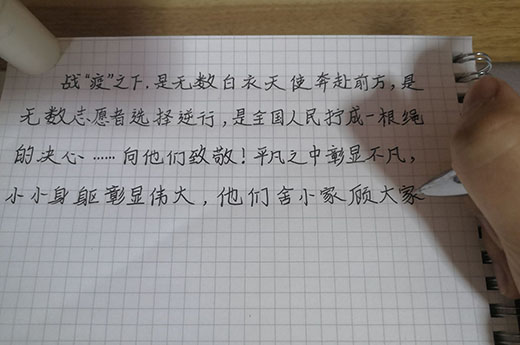 战“疫”之下,是无数白衣天使奔赴前方,是
无数志愿者选择逆行,是全国人民拧成一根绳
的决心……向他们致敬!平凡之中彰显不凡,
小小身躯彰显伟大,他们舍小家顾大家